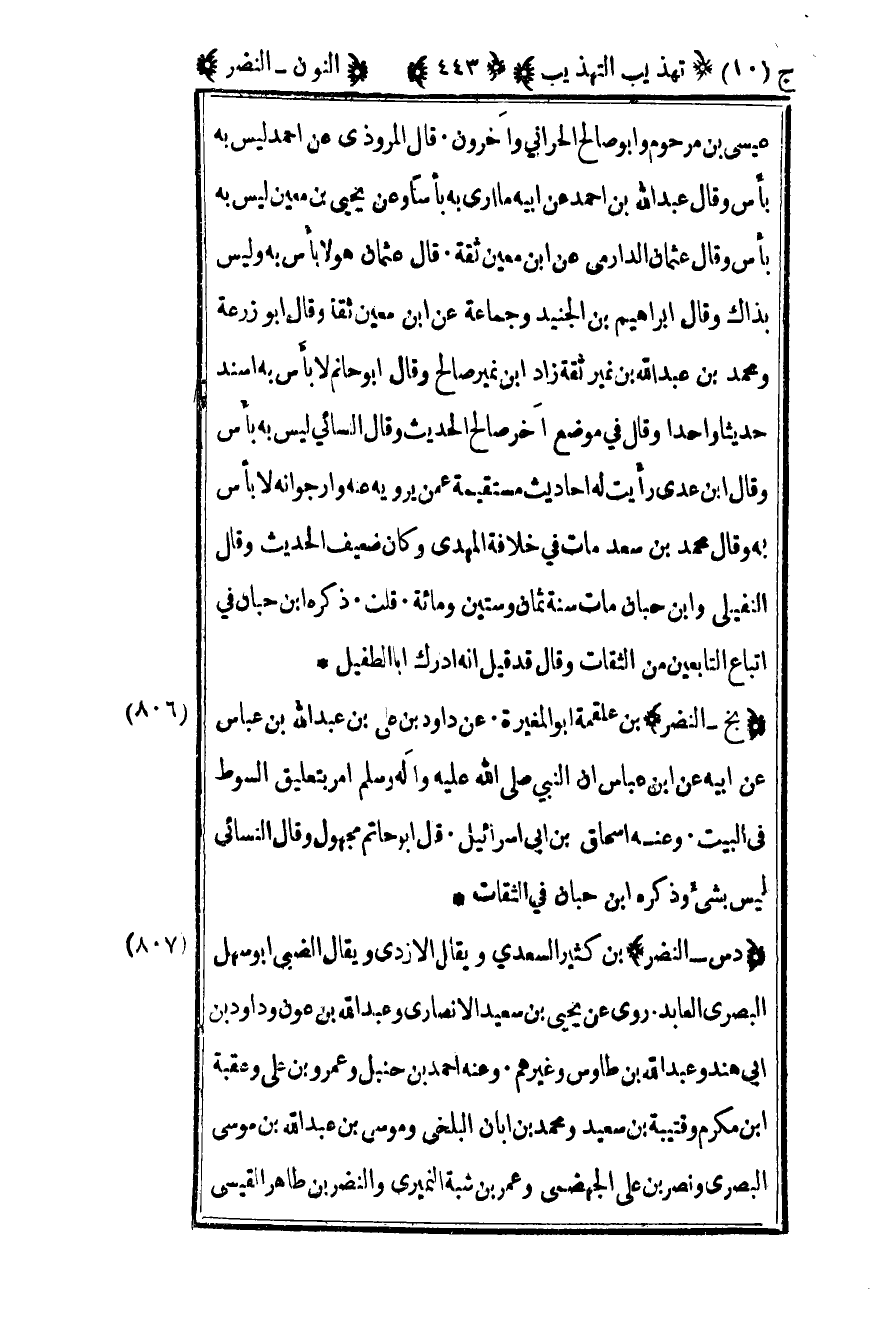 ج (١٠) ﴿ تهذيب التهذيب ﴾ ﴿ ٤٤٣ ﴾ ﴿ النون ـ النضر ﴾
عيسى بن مرحوم وابوصالح الحراني وآخرون ۰ قال المروذى عن احمد ليس به
بأس وقال عبدالله بن احمد عن ابيه ماارى به بأسا وعن يحيى بن معين ليس به
بأس وقال عثمان الدارمى عن ابن معين ثقة ۰ قال عثمان هو لا بأس به وليس
بذاك وقال ابراهيم بن الجنيد وجماعة عن ابن معين ثقة وقال ابو زرعة
ومحمد بن عبدالله بن نمير ثقة زاد ابن نمير صالح وقال ابوحاتم لا بأس به اسند
حديثا واحدا وقال في موضع آخر صالح الحديث وقال النسائي ليس به بأس
وقال ابن عدى رأيت له احاديث مستقيمة عمن يرويه عنه وارجو انه لا بأس
به وقال محمد بن سعد مات في خلافة المهدى وكان ضعيف الحديث وقال
النفيلى وابن حبان مات سنة ثمان وستين ومائة ۰ قلت ۰ ذكره ابن حبان في
اتباع التابعين من الثقات وقال قد قيل انه ادرك ابا الطفيل *
﴿ بخ ـ النضر ﴾ بن علقمة ابوالمغيرة ۰ عن داود بن على بن عبدالله بن عباس (٨٠٦)
عن ابيه عن ابن عباس ان النبي صلى الله عليه وآله وسلم امر بتعليق السوط
فى البيت ۰ وعنه اسحاق بن ابى اسرائيل ۰ قال ابوحاتم مجهول وقال النسائى
ليس بشئ وذكره ابن حبان في الثقات *
﴿ دس ـ النضر ﴾ بن كثير السعدي ويقال الازدى ويقال الضبى ابوسهل (٨٠٧)
البصرى العابد ۰ روى عن يحيى بن سعيد الانصارى وعبدالله بن عون وداود بن
ابي هند وعبدالله بن طاوس وغيرهم ۰ وعنه احمد بن حنبل وعمرو بن على وعقبة
ابن مكرم وقتيبة بن سعيد ومحمد بن ابان البلخى وموسى بن عبدالله بن موسى
البصرى ونصر بن على الجهضمى وعمر بن شبة النميرى والنضر بن طاهر القيسى